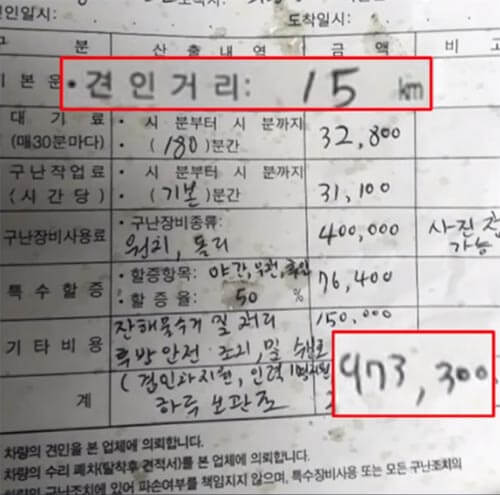 인일시:
도착일시:
구 분 산 출 내 역 금 액 비
기 본 운
• 견 인 거 리: 15 km
대 기 료 • 시 분부터 시 분까지
(매30분마다) • (180)분간 32,800
구난작업료 • 시 분부터 시 분까지
(시 간 당) • (기본)분간 31,100
구난장비사용료 • 구난장비종류: 400,000 사진
윈치, 돌리 가능
특 수 할 증 • 할증항목: 야간, 우천, 76,400
• 할 증 율: 50 %
기 타 비 용 잔해물수거 및 처리 150,000
후방안전 조치, 및
계 (견인과지원, 인력 973,300
하루 보관료
차량의 견인을 본 업체에 의뢰합니다.
차량의 수리 폐차(탈착후 견적서)를 본 업체에 의뢰합니다.
차량의 구난조치에 있어 파손여부를 책임지지 않으며, 특수장비사용 또는 모든 구난조치의